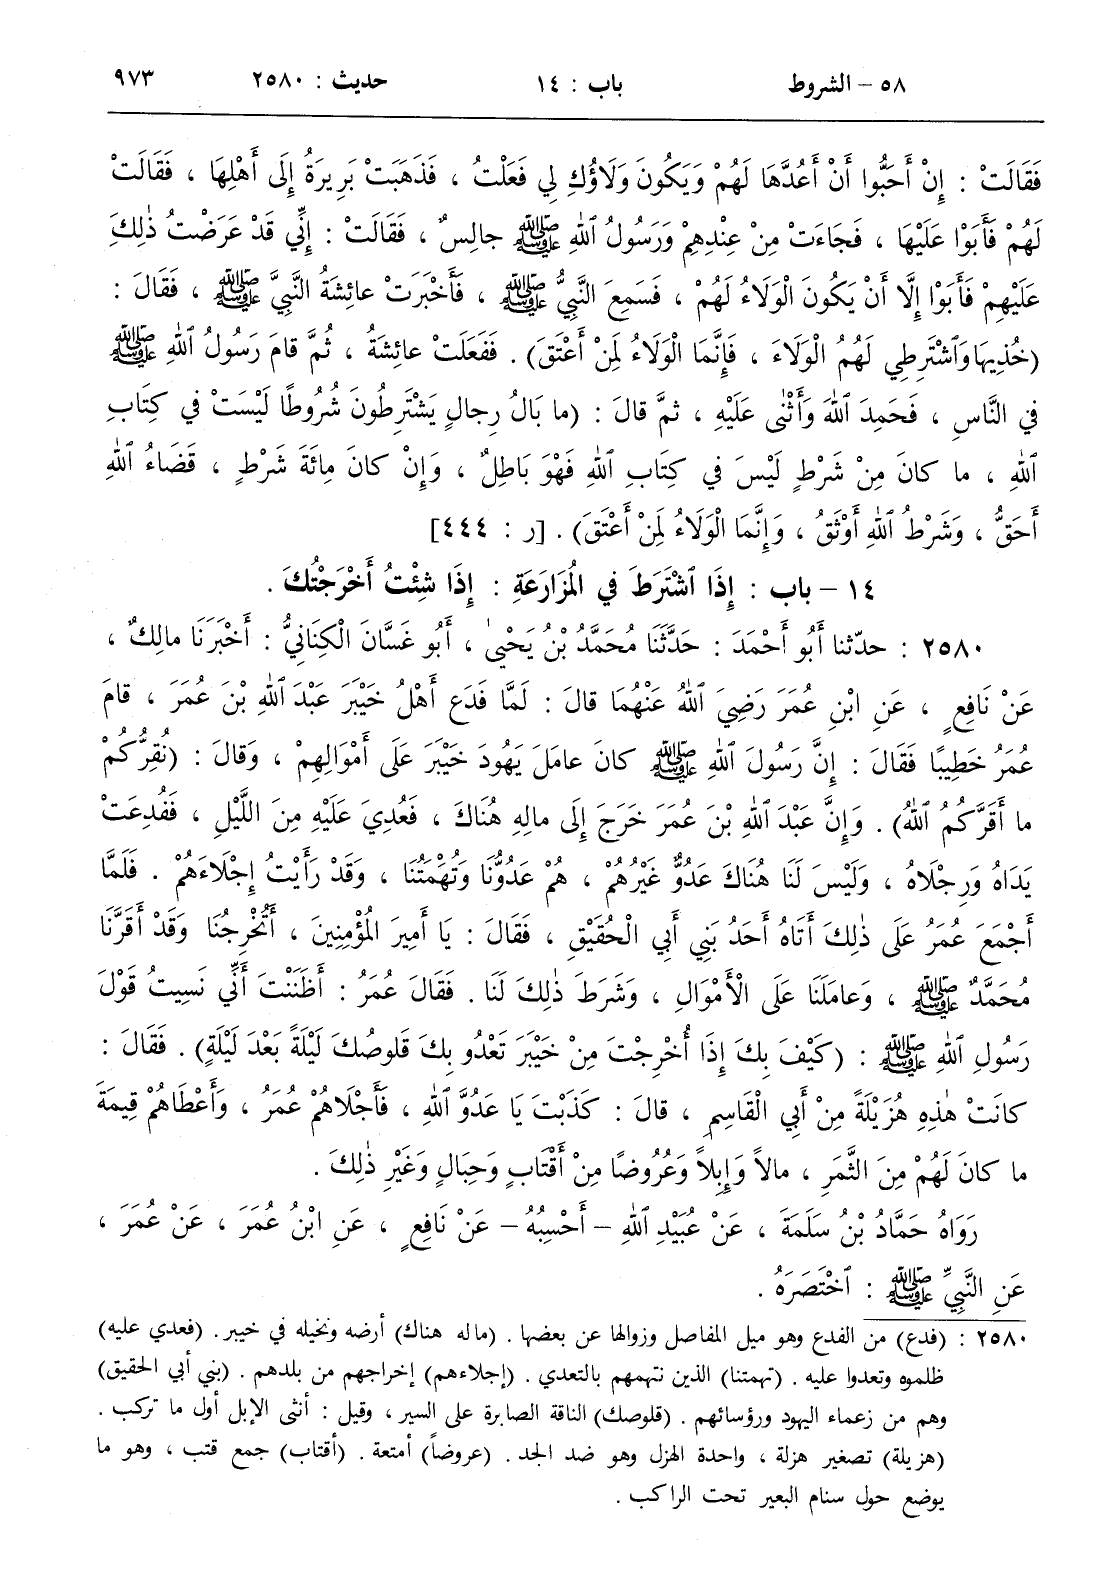 ٥٨ – الشروط باب : ١٤ حديث : ٢٥٨٠ ٩٧٣
فَقَالَتْ : إِنْ أَحَبُّوا أَنْ أَعُدَّهَا لَهُمْ وَيَكُونَ وَلَاؤُكِ لِي فَعَلْتُ ، فَذَهَبَتْ بَرِيرَةُ إِلَى أَهْلِهَا ، فَقَالَتْ
لَهُمْ فَأَبَوْا عَلَيْهَا ، فَجَاءَتْ مِنْ عِنْدِهِمْ وَرَسُولُ ٱللهِ ﷺ جالِسٌ ، فَقَالَتْ : إِنِّي قَدْ عَرَضْتُ ذٰلِكَ
عَلَيْهِمْ فَأَبَوْا إِلَّا أَنْ يَكُونَ الْوَلَاءُ لَهُمْ ، فَسَمِعَ النَّبِيُّ ﷺ ، فَأَخْبَرَتْ عائِشَةُ النَّبِيَّ ﷺ ، فَقَالَ :
(خُذِيهَا وَٱشْتَرِطِي لَهُمُ الْوَلَاءَ ، فَإِنَّمَا الْوَلَاءُ لِمَنْ أَعْتَقَ) . فَفَعَلَتْ عائِشَةُ ، ثُمَّ قامَ رَسُولُ ٱللهِ ﷺ
في النَّاسِ ، فَحَمِدَ ٱللهَ وَأَثْنٰى عَلَيْهِ ، ثمَّ قالَ : (ما بَالُ رِجالٍ يَشْتَرِطُونَ شُرُوطًا لَيْسَتْ في كِتَابِ
ٱللهِ ، ما كانَ مِنْ شَرْطٍ لَيْسَ في كِتَابِ ٱللهِ فَهْوَ بَاطِلٌ ، وَإِنْ كانَ مِائَةَ شَرْطٍ ، قَضَاءُ ٱللهِ
أَحَقُّ ، وَشَرْطُ ٱللهِ أَوْثَقُ ، وَإِنَّمَا الْوَلَاءُ لِمَنْ أَعْتَقَ) . [ر : ٤٤٤]
١٤ – باب : إِذَا ٱشْتَرَطَ في الْمُزَارَعَةِ : إِذَا شِئْتُ أَخْرَجْتُكَ .
٢٥٨٠ : حدّثنا أَبُو أَحْمَدَ : حَدَّثَنَا مُحَمَّدُ بْنُ يَحْيىٰ ، أَبُو غَسَّانَ الْكِنَانِيُّ : أَخْبَرَنَا مالِكٌ ،
عَنْ نَافِعٍ ، عَنِ ابْنِ عُمَرَ رَضِيَ ٱللهُ عَنْهُمَا قالَ : لَمَّا فَدَعَ أَهْلُ خَيْبَرَ عَبْدَ ٱللهِ بْنَ عُمَرَ ، قامَ
عُمَرُ خَطِيبًا فَقَالَ : إِنَّ رَسُولَ ٱللهِ ﷺ كانَ عامَلَ يَهُودَ خَيْبَرَ عَلَى أَمْوَالِهِمْ ، وَقالَ : (نُقِرُّكُمْ
ما أَقَرَّكُمُ ٱللهُ) . وَإِنَّ عَبْدَ ٱللهِ بْنَ عُمَرَ خَرَجَ إِلَى مالِهِ هُنَاكَ ، فَعُدِيَ عَلَيْهِ مِنَ اللَّيْلِ ، فَفُدِعَتْ
يَدَاهُ وَرِجْلَاهُ ، وَلَيْسَ لَنَا هُنَاكَ عَدُوٌّ غَيْرُهُمْ ، هُمْ عَدُوُّنَا وَتُهْمَتُنَا ، وَقَدْ رَأَيْتُ إِجْلَاءَهُمْ . فَلَمَّا
أَجْمَعَ عُمَرُ عَلَى ذٰلِكَ أَتَاهُ أَحَدُ بَنِي أَبِي الْحُقَيْقِ ، فَقَالَ : يَا أَمِيرَ الْمُؤْمِنِينَ ، أَتُخْرِجُنَا وَقَدْ أَقَرَّنَا
مُحَمَّدٌ ﷺ ، وَعامَلَنَا عَلَى الْأَمْوَالِ ، وَشَرَطَ ذٰلِكَ لَنَا . فَقَالَ عُمَرُ : أَظَنَنْتَ أَنِّي نَسِيتُ قَوْلَ
رَسُولِ ٱللهِ ﷺ : (كَيْفَ بِكَ إِذَا أُخْرِجْتَ مِنْ خَيْبَرَ تَعْدُو بِكَ قَلُوصُكَ لَيْلَةً بَعْدَ لَيْلَةٍ) . فَقَالَ :
كانَتْ هٰذِهِ هُزَيْلَةً مِنْ أَبِي الْقَاسِمِ ، قالَ : كَذَبْتَ يَا عَدُوَّ ٱللهِ ، فَأَجْلَاهُمْ عُمَرُ ، وَأَعْطَاهُمْ قِيمَةَ
ما كانَ لَهُمْ مِنَ الثَّمَرِ ، مالاً وَإِبِلاً وَعُرُوضًا مِنْ أَقْتَابٍ وَحِبَالٍ وَغَيْرِ ذٰلِكَ .
رَوَاهُ حَمَّادُ بْنُ سَلَمَةَ ، عَنْ عُبَيْدِ ٱللهِ – أَحْسِبُهُ – عَنْ نَافِعٍ ، عَنِ ابْنُ عُمَرَ ، عَنْ عُمَرَ ،
عَنِ النَّبِيِّ ﷺ : ٱخْتَصَرَهُ .
٢٥٨٠ : (فدع) من الفدع وهو ميل المفاصل وزوالها عن بعضها . (ماله هناك) أرضه ونخيله في خيبر . (فعدي عليه)
ظلموه وتعدوا عليه . (تهمتنا) الذين نتهمهم بالتعدي . (إجلاءهم) إخراجهم من بلدهم . (بني أبي الحقيق)
وهم من زعماء اليهود ورؤسائهم . (قلوصك) الناقة الصابرة على السير ، وقيل : أنثى الإبل أول ما تركب .
(هزيلة) تصغير هزلة ، واحدة الهزل وهو ضد الجد . (عروضاً) أمتعة . (أقتاب) جمع قتب ، وهو ما
يوضع حول سنام البعير تحت الراكب .